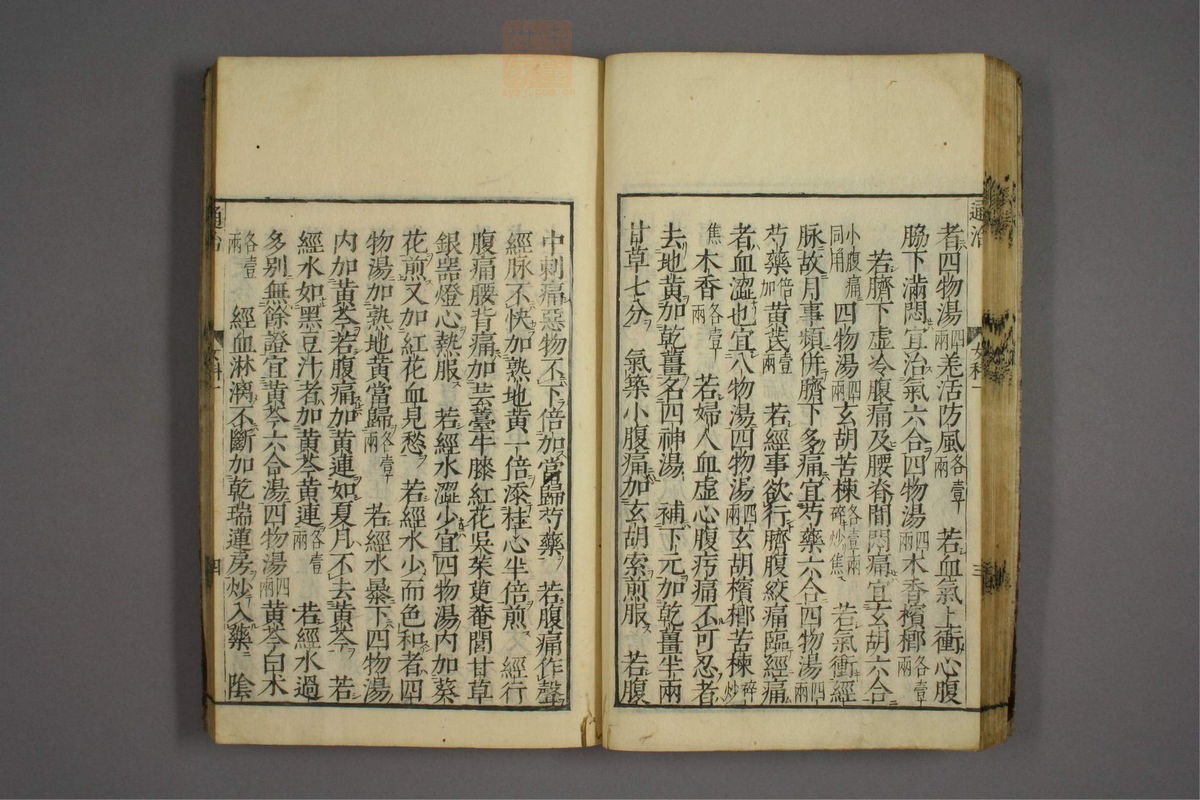 者四物湯四兩羌活防風各壹兩　若血氣上衝心腹
脇下滿悶宜治氣六合四物湯四兩木香檳榔各壹兩
若臍下虛冷腹痛及腰脊間悶痛宜玄胡六合
小腹痛同用四物湯四兩玄胡苦楝各壹兩碎炒焦　若氣衝經
脉故月事頻併臍下多痛宜芍藥六合四物湯四兩
芍藥倍加黃芪壹兩　若經事欲行臍腹絞痛臨經痛
者血澀也宜八物湯四物湯四兩玄胡檳榔苦楝碎炒
焦木香各壹兩　若婦人血虛心腹㽲痛不可忍者
去地黃加乾薑名四神湯　補下元加乾薑半兩
甘草七分　氣築小腹痛加玄胡索煎服　若腹
通治
女科
三
中刺痛惡物不下倍加當歸芍藥　若腹痛作聲
經脉不快加熟地黃一倍添桂心半倍煎　經行
腹痛腰背痛加芸薹牛膝紅花吳茱萸菴䕡甘草
銀器燈心熱服　若經水澀少宜四物湯內加葵
花煎又加紅花血見愁　若經水少而色和者四
物湯加熟地黃當歸各壹兩　若經水暴下四物湯
內加黃芩若腹痛加黃連如夏月不去黃芩　若
經水如黑豆汁者加黃芩黃連各壹兩　若經水過
多別無餘證宜黃芩六合湯四物湯四兩黃芩白术
各壹兩　經血淋漓不斷加乾瑞蓮房炒入藥　陰
通治
女科
四